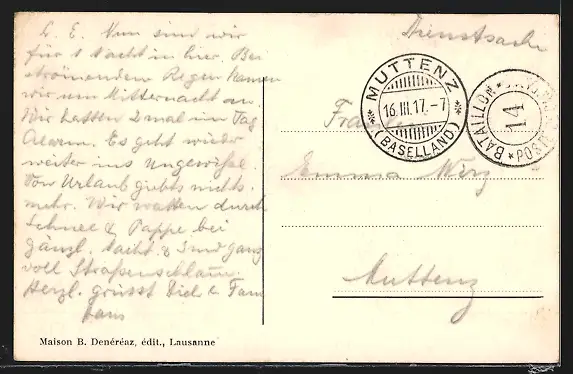 L. E. Nun sind wir
für 1 Nacht in hier. Bei
strömendem Regen kamen
wir um Mitternacht an.
Wir hatten 2 mal im Tag
Alarm. Es geht wieder
weiter ins Ungewisse
Von Urlaub giebts nichts
mehr. Wir watten durch
Schnee & Pappe bei
gänzl. Nacht & sind ganz
voll Straßenschlamm.
Herzl. grüsst Dich & Fam
Hans
Maison B. Denéréaz, édit., Lausanne
Dienstsache
MUTTENZ
16.III.17.-7
(BASELLAND)
BATAILLON
14
Frau
Emma Wirz
Muttenz